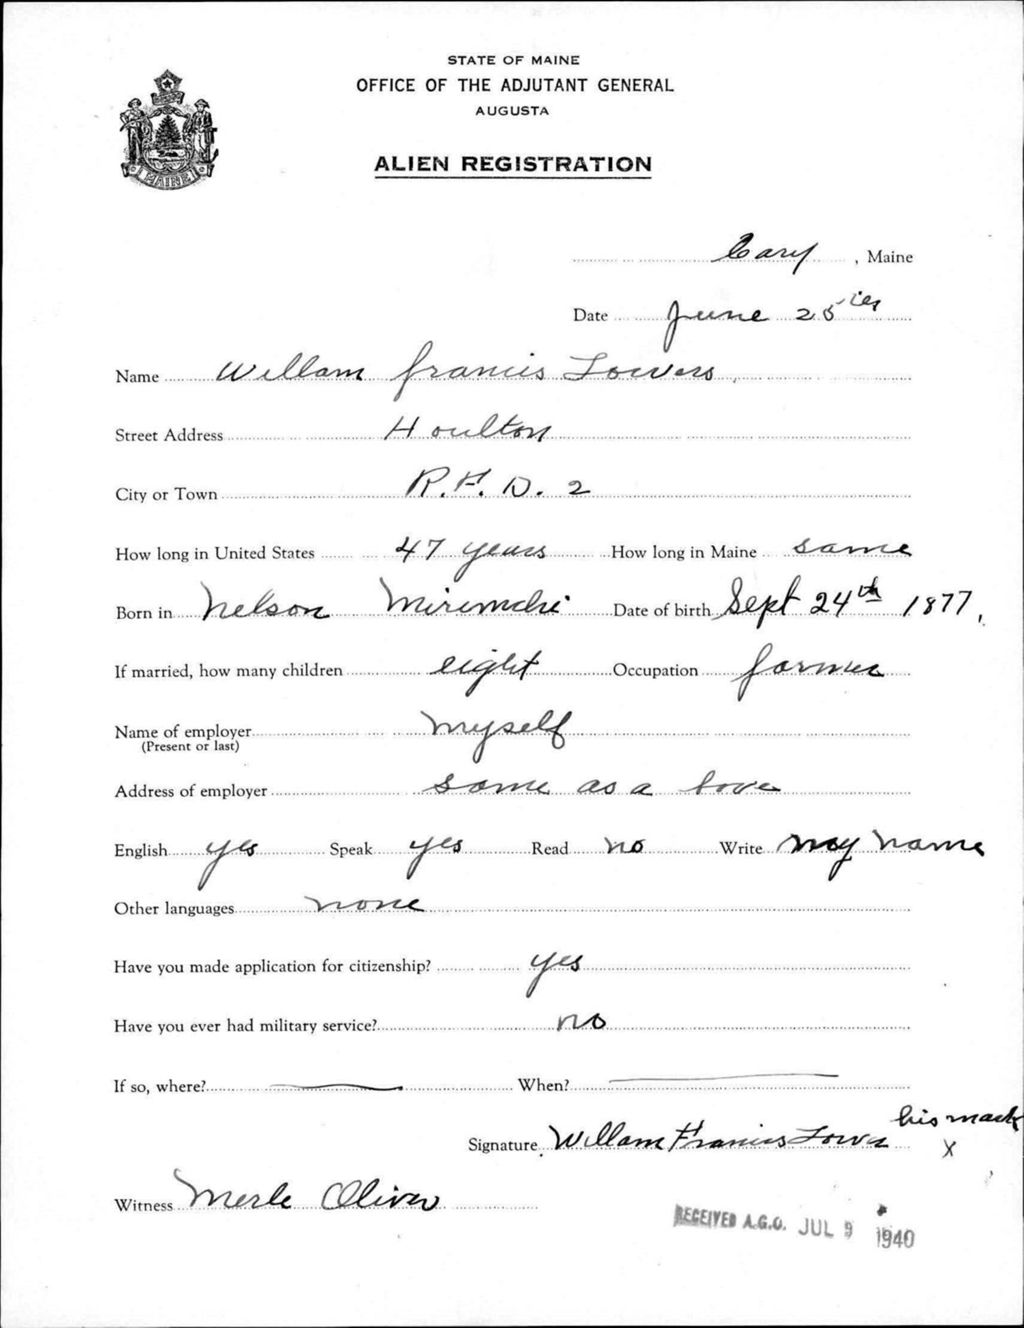 STATE OF MAINE
OFFICE OF THE ADJUTANT GENERAL
AUGUSTA
ALIEN REGISTRATION
MAINE
Cary, Maine
Date June 25
Name Willam Francis Lowers
Street Address Houlton
City or Town R.F.D. 2
How long in United States 47 years How long in Maine same
Born in Nelson Date of birth Sept 24th 1877,
If married, how many children eight Occupation farmer
Name of employer myself
(Present or last)
Address of employer same as a bove
English yes Speak yes Read no Write my name
Other languages none
Have you made application for citizenship? yes
Have you ever had military service? no
If so, where? When?
his mark
Signature Willam Francis X
Witness Merle Oliver
RECEIVED A.G.O. JUL 9 1940